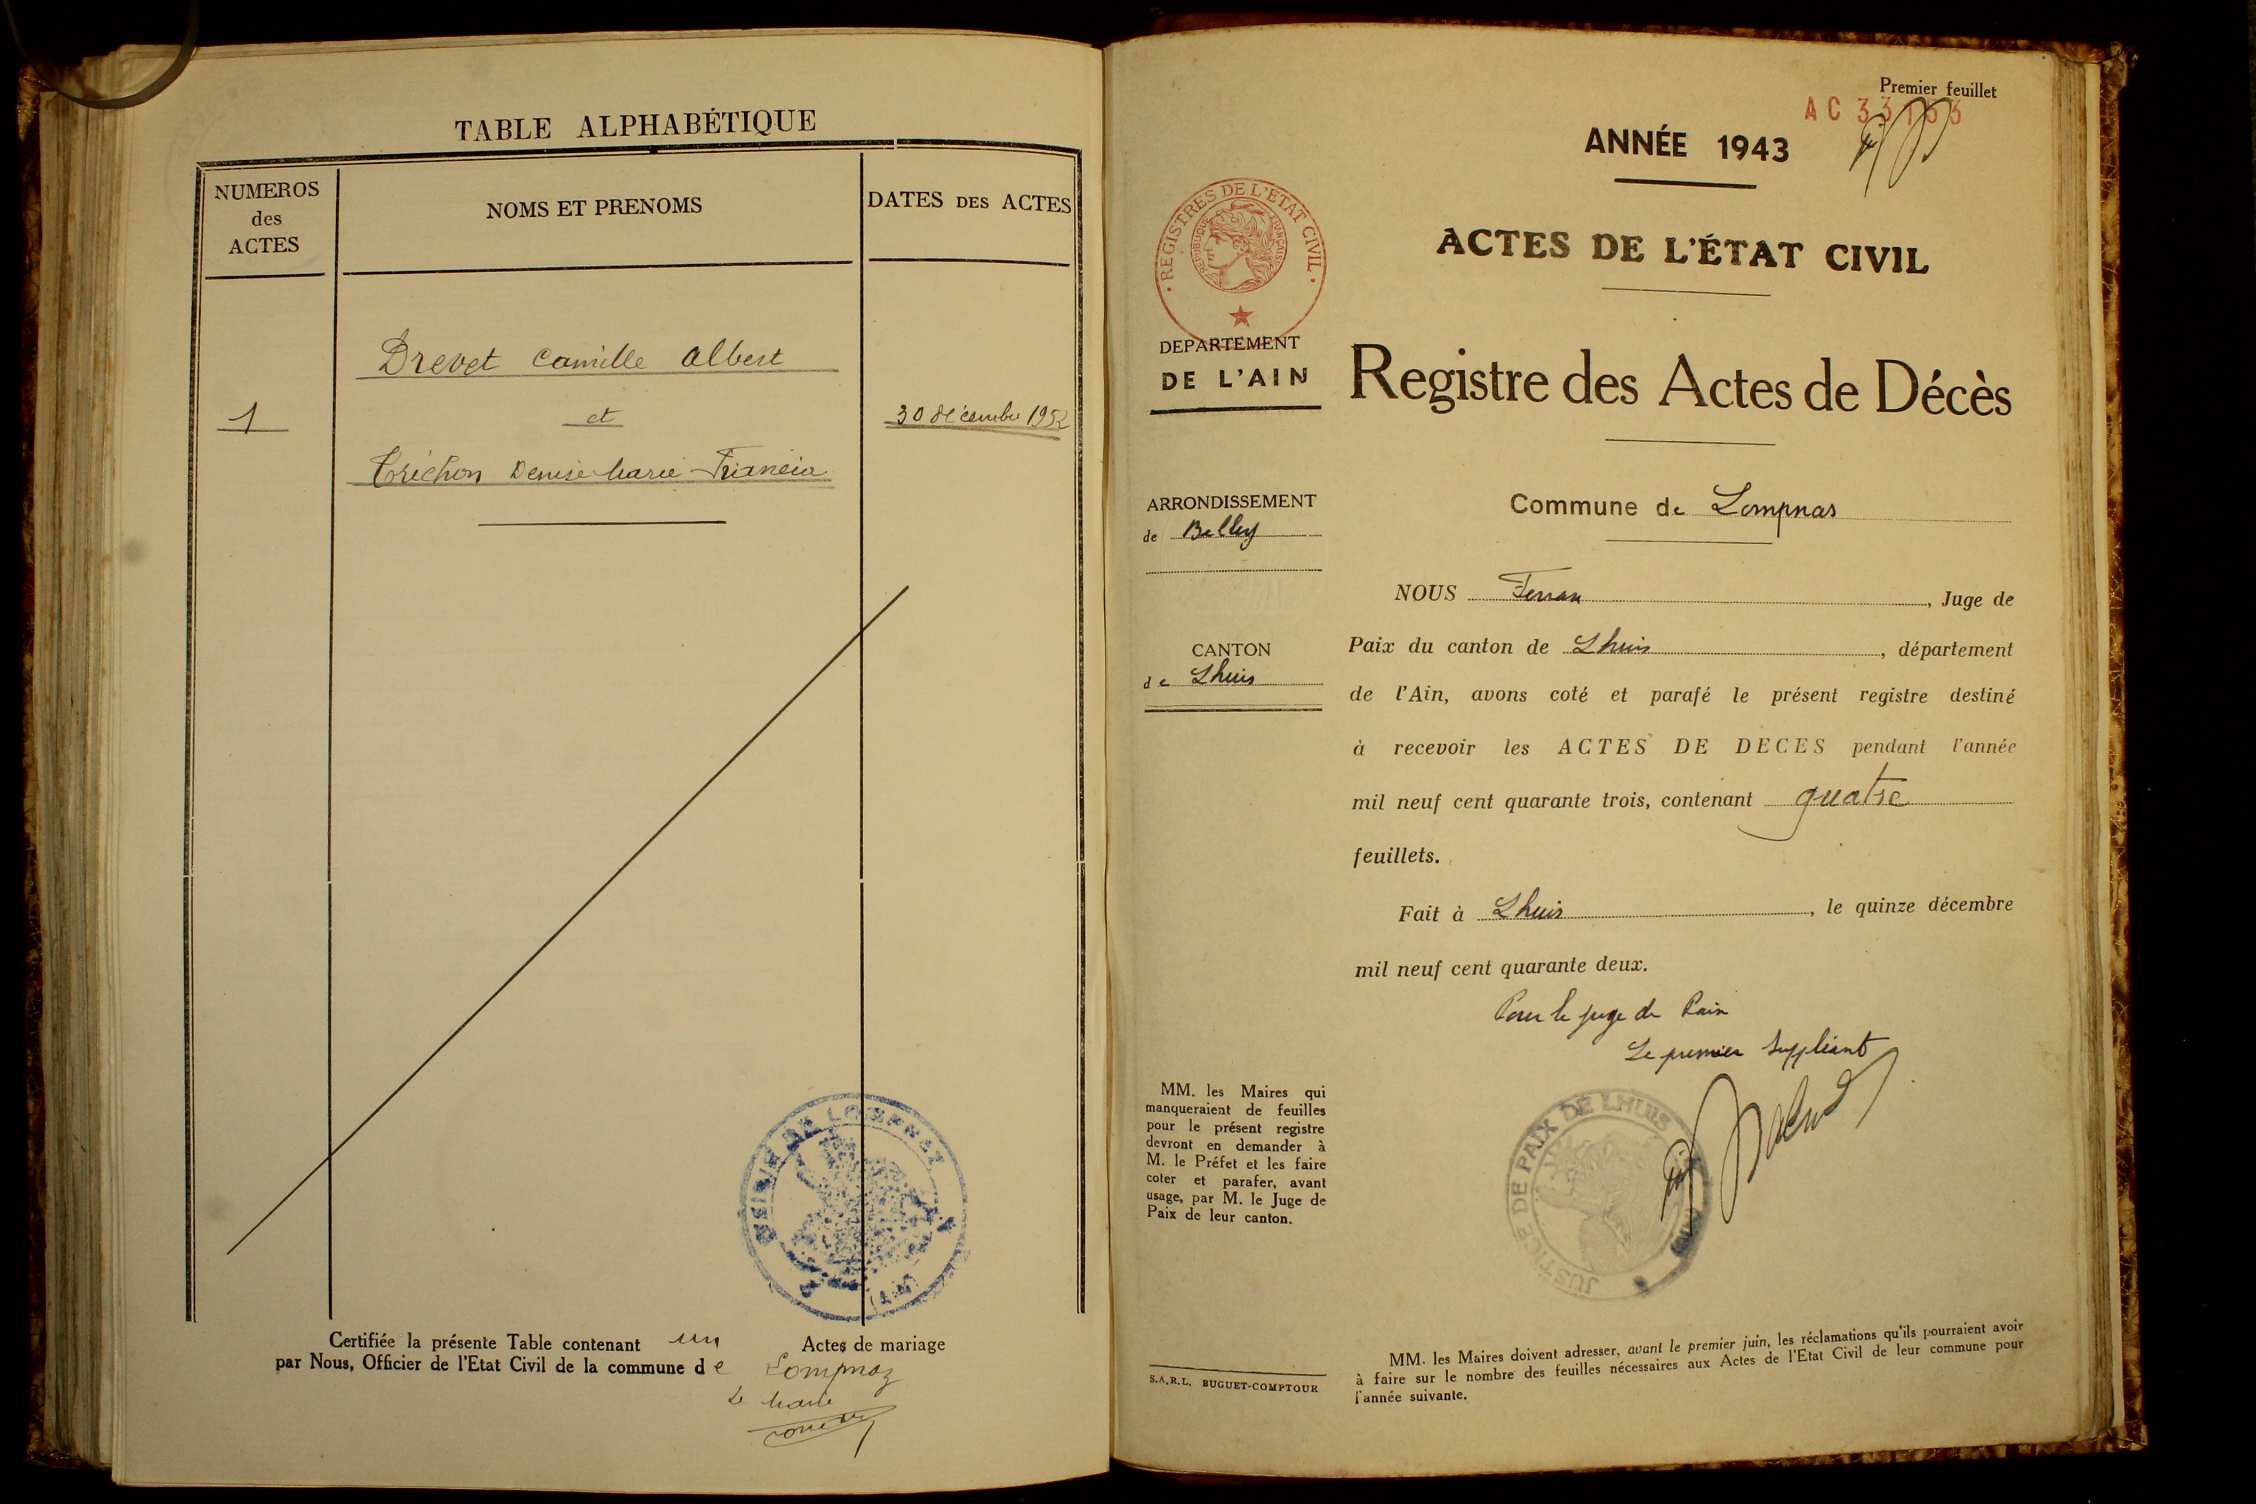 TABLE ALPHABÉTIQUE
NUMEROS
des
ACTES
NOMS ET PRENOMS
DATES DES ACTES
Drevet Camille Albert
1
et
30 décembre 1952
Tréchon Denise Marie Francia
Certifiée la présente Table contenant un Actes de mariage
par Nous, Officier de l'Etat Civil de la commune de Lompnaz
Le Maire
Premier feuillet
ANNÉE 1943
REGISTRES DE L'ÉTAT CIVIL
RÉPUBLIQUE FRANÇAISE
ACTES DE L'ÉTAT CIVIL
DEPARTEMENT
DE L'AIN
Registre des Actes de Décès
ARRONDISSEMENT
de Belley
Commune de Lompnas
NOUS Ferran, Juge de
CANTON
de Lhuis
Paix du canton de Lhuis, département
de l'Ain, avons coté et parafé le présent registre destiné
à recevoir les ACTES DE DECES pendant l'année
mil neuf cent quarante trois, contenant quatre
feuillets.
Fait à Lhuis, le quinze décembre
mil neuf cent quarante deux.
Pour le juge de Paix
Le premier Suppléant
JUSTICE DE PAIX DE LHUIS
MM. les Maires qui
manqueraient de feuilles
pour le présent registre
devront en demander à
M. le Préfet et les faire
coter et parafer, avant
usage, par M. le Juge de
Paix de leur canton.
S.A.R.L. BUGUET-COMPTOUR
MM. les Maires doivent adresser, avant le premier juin, les réclamations qu'ils pourraient avoir
à faire sur le nombre des feuilles nécessaires aux Actes de l'Etat Civil de leur commune pour
l'année suivante.